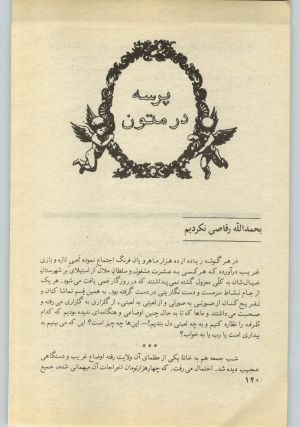 پرسه
در متون
بحمدالله رقاصی نکردیم
در هر گوشه زیاده از ده هزار ماهرویان فرنگ اجتماع نموده لُعبی تازه و بازی
غریب درآورده که هر کسی به عشرت مشغول و سلطان ملال از استیلای بر شهرستان
خیالشان به کلّی معزول گشته نمی‌پندارند که در روزگار غمی یافت می‌شود. هر یک
از جام نشاط سرمست و دست نگارینی در دست گرفته بود. به همین قِسم تماشا کنان و
تفریح کنان از صوتی به صوتی و از لعبتی به لعبتی، از گلزاری به گلزاری می‌رفته و
صحبت می‌داشتند و ماها که تا به حال چنین اوضاعی و هنگامه‌ای ندیده بودیم که کدام
طرفه را نظاره کنیم و به چه لعبتی دل بندیم!... این‌ها چه چیز است؟ این که می‌بینیم به
بیداری است یا رب یا به خواب؟
***
شب جمعه هم به خانهٔ یکی از عظمای آن ولایت رفته اوضاع غریب و دستگاهی
عجیب دیده شد. احتمال می‌رفت. که چهار هزار تومان اخراجات آن میهمانی شده، جمیع
۱۲۰